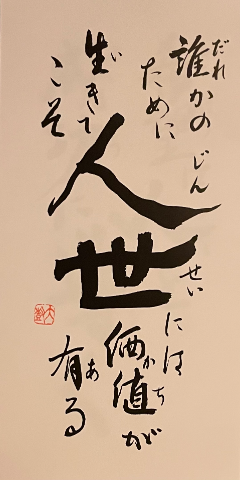 だれ
誰かの
ために
い
生きて
こそ
じんせい
人世
には
かち
価値が
あ
有る